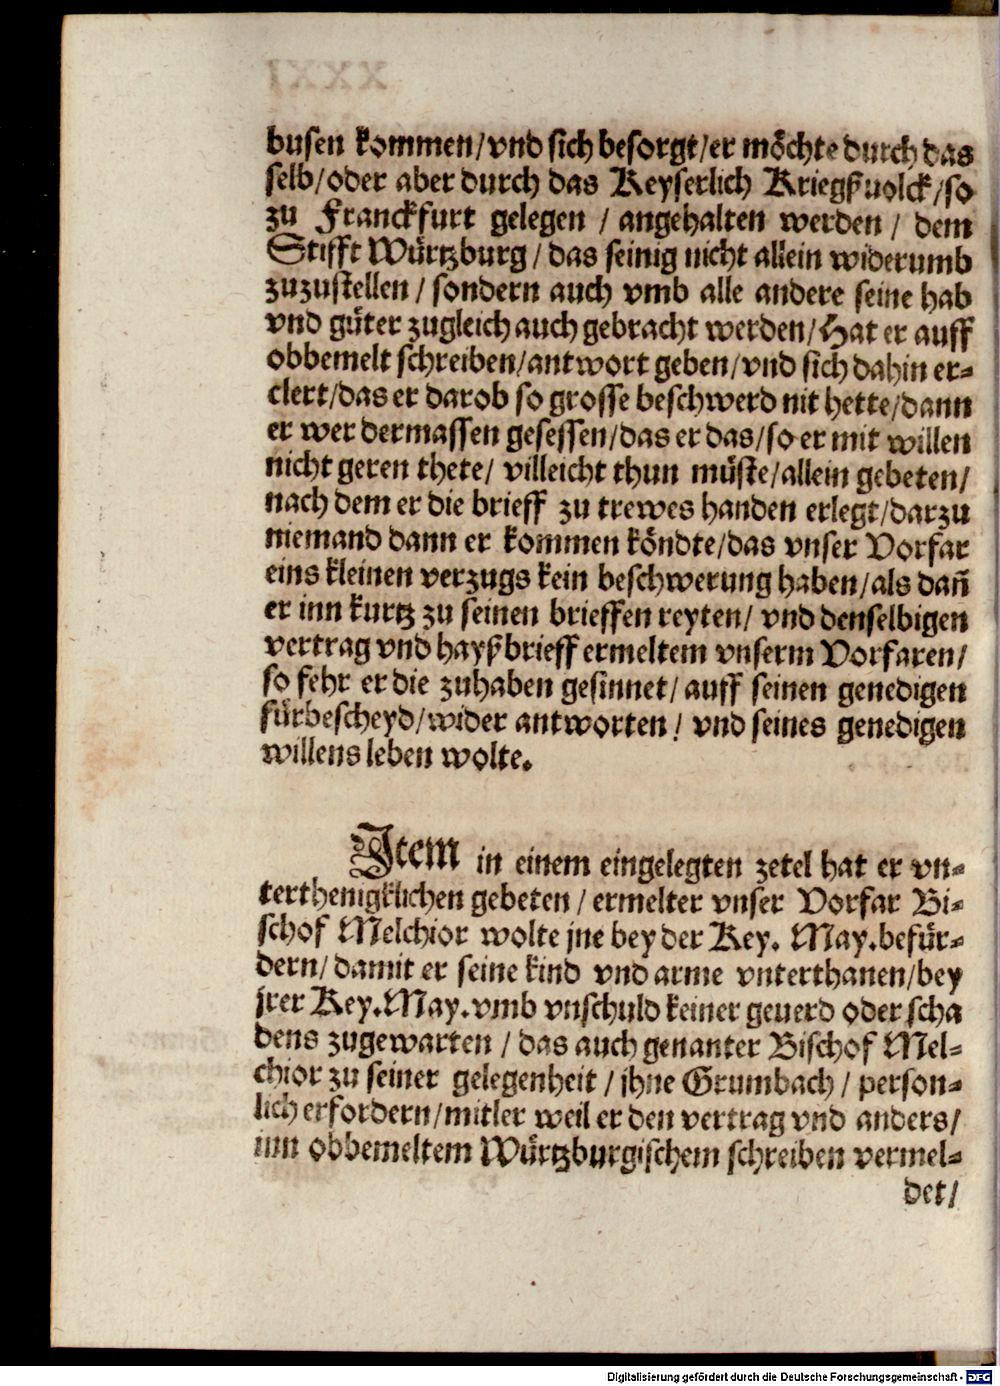 busen kommen/vnd sich besorgt/er möchte durch das
selb/oder aber durch das Keyserlich Kriegßuolck/so
zu Franckfurt gelegen / angehalten werden / dem
Stifft Würtzburg / das seinig nicht allein widerumb
zuzustellen / sondern auch vmb alle andere seine hab
vnd güter zugleich auch gebracht werden/Hat er auff
obbemelt schreiben/antwort geben/vnd sich dahin er-
clert/das er darob so grosse beschwerd nit hette/dann
er wer dermassen gesessen/das er das/so er mit willen
nicht geren thete/ villeicht thun müste/allein gebeten/
nach dem er die brieff zu trewes handen erlegt/darzu
niemand dann er kommen köndte/das vnser Vorfar
eins kleinen verzugs kein beschwerung haben/als dañ
er inn kurtz zu seinen brieffen reyten/ vnd denselbigen
vertrag vnd hayßbrieff ermeltem vnserm Vorfaren/
so fehr er die zuhaben gesinnet/ auff seinen genedigen
fürbescheyd/wider antworten/ vnd seines genedigen
willens leben wolte.
Item in einem eingelegten zetel hat er vn-
terthenigklichen gebeten / ermelter vnser Vorfar Bi-
schof Melchior wolte jne bey der Key. May. befür-
dern/ damit er seine kind vnd arme vnterthanen/bey
jrer Key. May. vmb vnschuld keiner geuerd oder scha
dens zugewarten / das auch genanter Bischof Mel-
chior zu seiner gelegenheit / jhne Grumbach / person-
lich erfordern/mitler weil er den vertrag vnd anders/
inn obbemeltem Würtzburgischem schreiben vermel-
det/
Digitalisierung gefördert durch die Deutsche Forschungsgemeinschaft - DFG